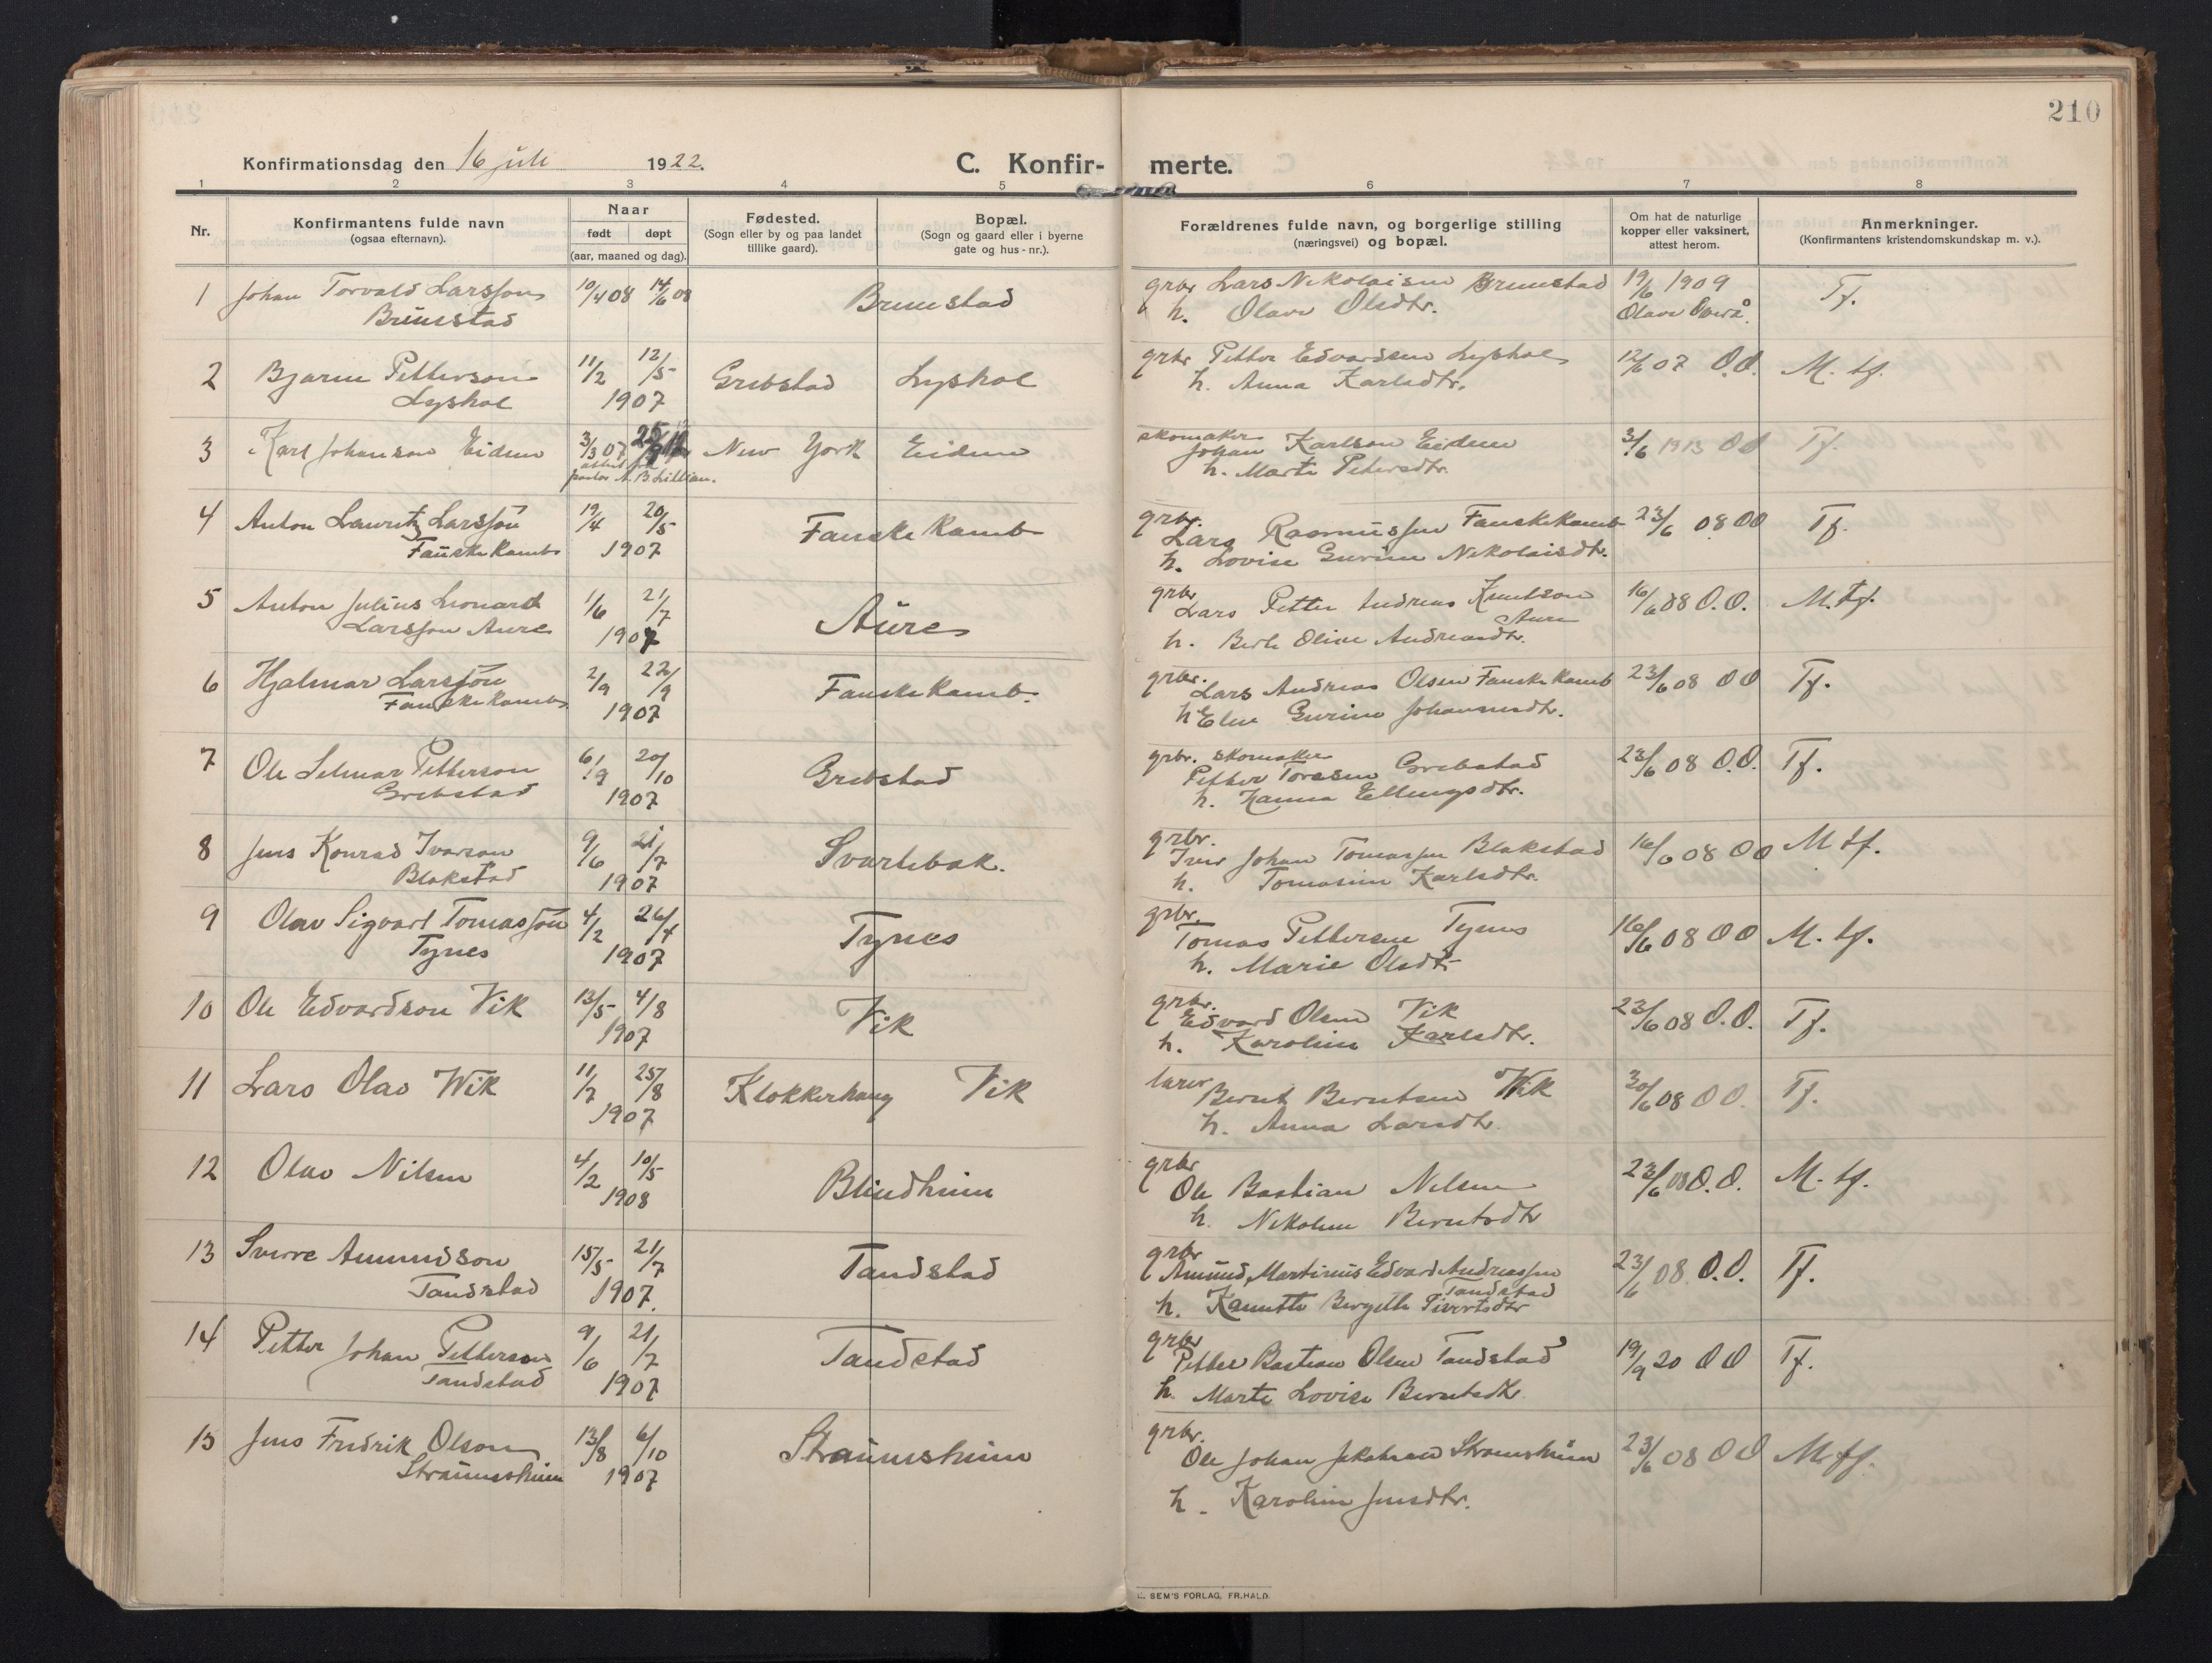 210
Konfirmationsdag den 16 juli 1922.
C. Konfir- merte.
1 2 3 4 5 6 7 8
Nr.
Konfirmantens fulde navn
(ogsaa efternavn).
Naar
født døpt
(aar, maaned og dag).
Fødested.
(Sogn eller by og paa landet
tillike gaard).
Bopæl.
(Sogn og gaard eller i byerne
gate og hus-nr.).
Forældrenes fulde navn, og borgerlige stilling
(næringsvei) og bopæl.
Om hat de naturlige
kopper eller vaksinert,
attest herom.
Anmerkninger.
(Konfirmantens kristendomskundskap m. v.).
1 Johan Torvald Larsson 10/4 08 14/6 08 Brunstad grbr Lars Nikolaisen Brunstad 19/6 1909 Tf.
Brunstad h. Olave Olsdtr. Olave Överå.
2 Bjarne Petterson 11/2 12/5 Grebstad Lyshol grbr Petter Edvardsen Lyshol 12/6 07 O.O. M. tf.
Lyshol 1907 h. Anna Karlsdtr.
3 Karl Johanson Eidem 3/3 07 New York Eidem skomaker Johan Karlson Eidem 3/6 1913 OO Tf.
attest fra h. Marte Petersdtr.
pastor
4 Anton Lauritz Larsson 19/4 20/5 Fauske Kamb grbr. Lars Rasmussen Fauskekamb 23/6 08 OO Tf.
Fauske Kamb 1907 h. Lovise Gurine Nikolaisdtr.
5 Anton Julius Leonard 1/6 21/7 Aure grbr Lars Petter Andreas Knutson 16/6 08 O.O. M. Tf.
Larsson Aure 1907 Aure
h. Berte Oline Andreasdtr.
6 Hjalmar Larsson 2/9 22/9 Fauske Kamb. grbr. Lars Andreas Olsen Fauske Kamb 23/6 08 OO Tf.
Fauske Kamb 1907 h Eline Gurine Johannesdtr.
7 Ole Selmar Petterson 6/9 20/10 Grebstad grbr. skomaker 23/6 08 O.O. Tf.
Grebstad 1907 Petter Toresen Grebstad
h. Hanna Ellingsdtr.
8 Jens Konrad Ivarson 9/6 21/7 Svartebak. grbr. Iver Johan Tomassen Blakstad 16/6 08 OO M tf.
Blakstad 1907 h. Tomasine Karlsdtr.
9 Olav Sigvart Tomasson 4/2 26/4 Tynes grbr. Tomas Pettersen Tynes 16/6 08 OO M. tf.
Tynes 1907 h. Marie Olsdtr
10 Ole Edvardson Vik 13/5 4/8 Vik grbr. Edvard Olsen Vik 23/6 08 O.O. Tf.
1907 h. Karoline Karlsdtr.
11 Lars Olav Wik 11/7 25/8 Klokkerhaug Vik lærer Bernt Berntsen Wik 30/6 08 OO. Tf.
1907 h. Anna Larsdtr.
12 Olav Nilsen 4/2 10/5 Blindheim grbr Ole Bastian Nilsen 23/6 08 O.O. M. tf.
1908 h. Nikoline Berntsdtr
13 Sverre Amundson 15/5 21/7 Tandstad grbr Amund Martinus Edvard Andreassen 23/6 08. O.O. Tf.
Tandstad 1907. Tandstad
h. Kanutte Bergitte Sivertsdtr
14 Petter Johan Petterson 9/6 21/7 Tandstad grbr Petter Bastian Olsen Tandstad 19/9 20 OO Tf.
Tandstad 1907 h. Marte Lovise Berntsdtr.
15 Jens Fredrik Olson 13/8 6/10 Straumsheim grbr. Ole Johan Jakobsen Straumsheim 23/6 08 OO M tf.
Straumsheim 1907 h. Karoline Jensdtr.
SEM'S FORLAG, FR.HALD.